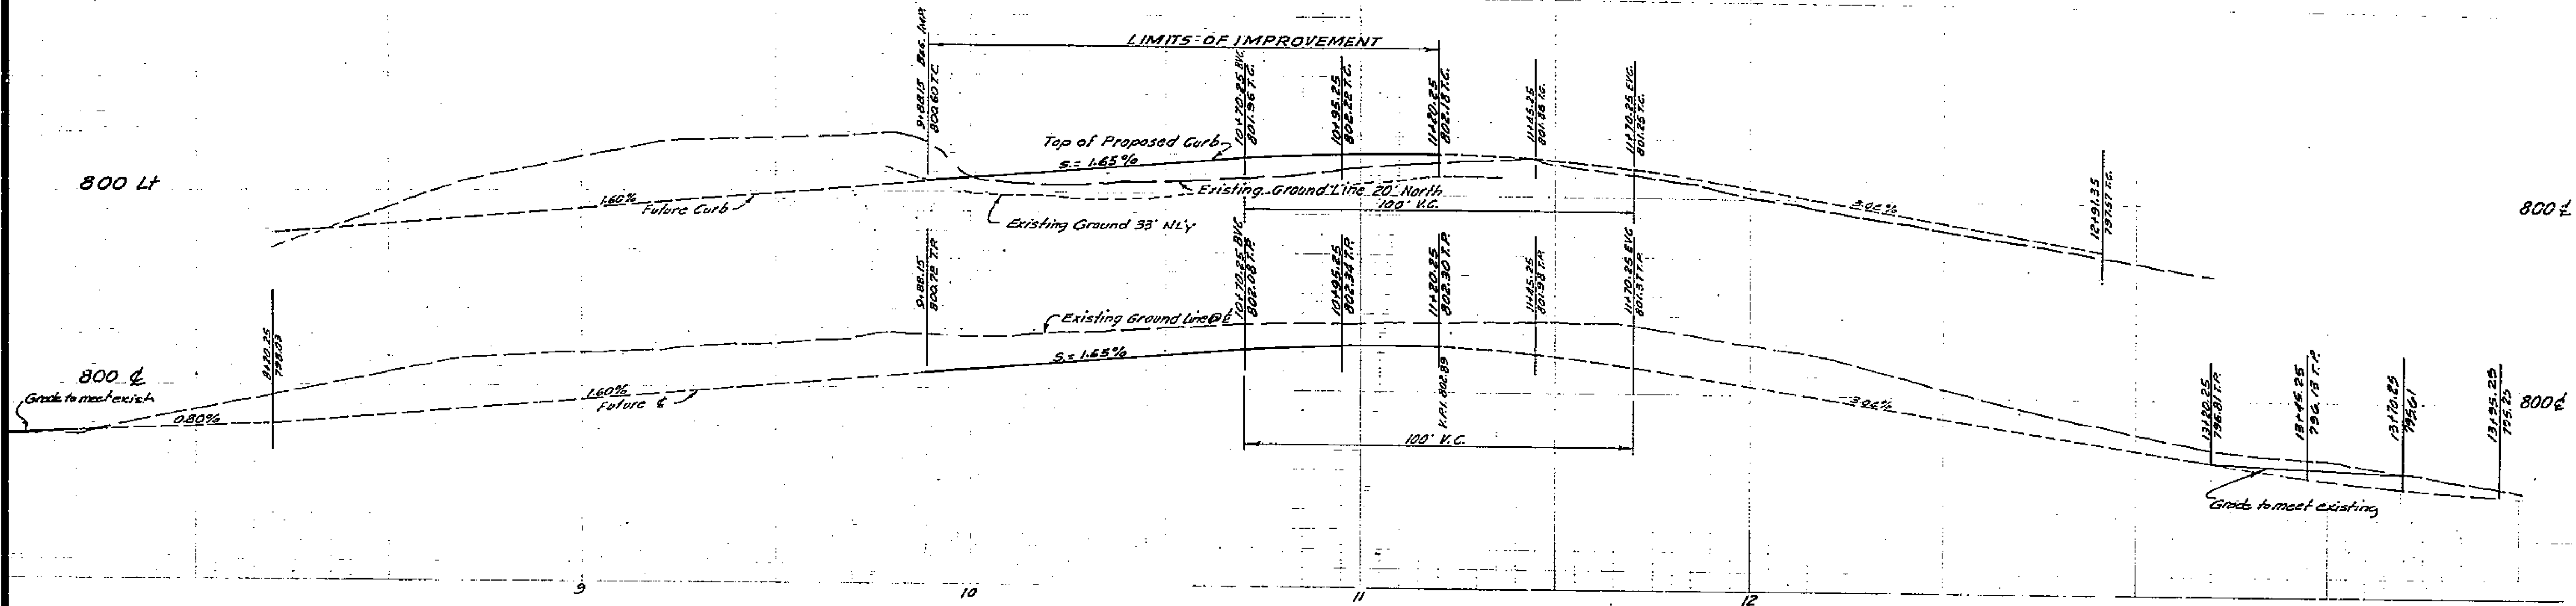 LIMITS OF IMPROVEMENT
9+88.15 BEG. IMP.
800.60 T.C.
10+70.25 BVC.
801.96 T.C.
10+95.25
802.22 T.C.
11+20.25
802.18 T.C.
11+45.25
801.86 T.C.
11+70.25 EVC.
801.25 T.C.
Top of Proposed Curb
S = 1.65%
800 Lt
1.60%
Future Curb
Existing Ground Line 20' North
100' V.C.
Existing Ground 33' NL'y
3.04%
12+91.35
797.57 T.C.
800 ℄
8+20.25
798.03
9+88.15
800.72 T.P.
10+70.25 BVC
802.08 T.P.
10+95.25
802.34 T.P.
11+20.25
802.30 T.P.
11+45.25
801.98 T.P.
11+70.25 EVC
801.37 T.P.
Existing Ground Line @ ℄
S = 1.65%
800 ℄
Grade to meet exist.
0.80%
1.60%
Future ℄
V.P.I. 802.89
100' V.C.
3.04%
13+20.25
796.81 T.P.
13+45.25
796.13 T.P.
13+70.25
795.61
13+95.25
795.25
800 ℄
Grade to meet existing
9
10
11
12